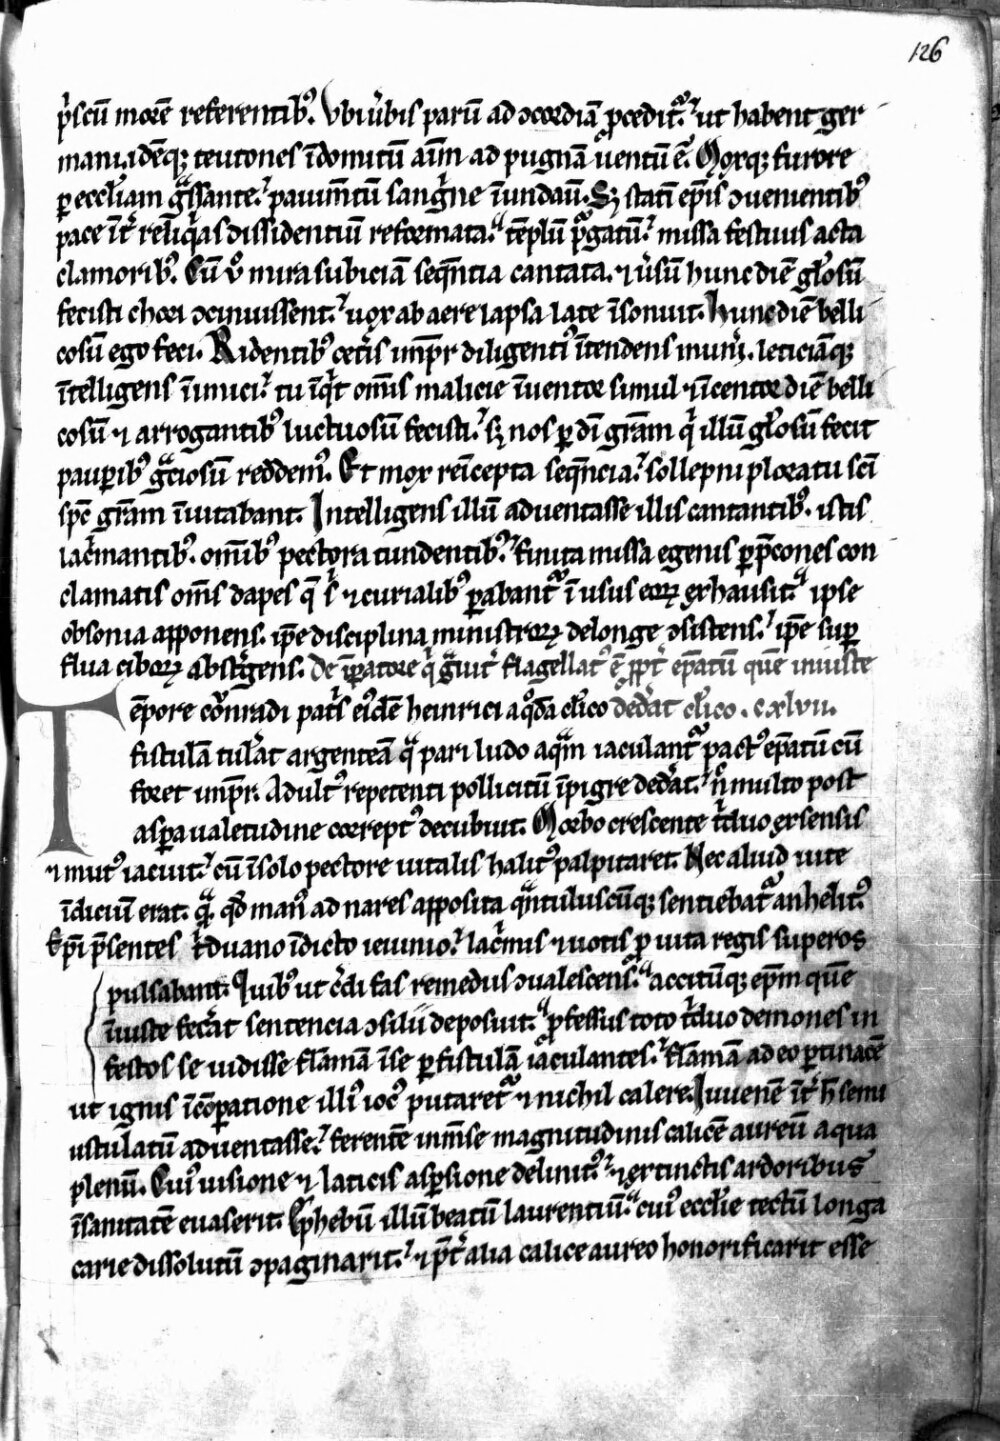 126
p̾scū morē referentib᷒. Vbi ủbis parū ad ↄcordiā ꝓcedit᷑. ut habent ger
mani. idēq; teutones īdomitū aīm ad pugnā ỷentū ē. Moxq; furore
ꝑ eccłiam g̃ssante. pauim̄tū sang̾ne īundaū. Sꝫ statī ep̄is ↄuenientib᷒
pace īt̾ reliq̾as dissidentiū reformata. tēplū p̾gatū. missa festiuis acta
clamorib᷒. Cū ỏ mira subiciā seq̄ntia cantata. ⁊ ủsū hunc diē głosū
fecisti chori ↄcinuissent. uox ab aere lapsa late īsonuit. Hunc diē belli
cosū ego feci. Ridentib᷒ cet̾is imp̄r diligenti᷒ ītendens mun̾i. leticiāq;
ītelligens īnimici. tu īq̾t om̄is malicie īuentor simul ⁊ īcentor diē belli
cosū ⁊ arrogantib᷒ luctuosū fecisti. sꝫ nos ꝑ dī grām q̾ illū głosū fecit
pauꝑib᷒ g̃ciosū reddem᷒. Et mox reīcepta seq̄ncia. sollepni ploratu sc̄i
sp̄c grām īuitabant. Intelligens illū aduentasse illis cantantib᷒. istis
lac̾mantib᷒. omīb᷒ pectora tundentib᷒. Finita missa egenis ꝑ p̄cones con
clamatis om̄s dapes q̄ s̾ ⁊ curialib᷒ ꝑabant᷑ ī usus eoꝝ exhausit. ipse
obsonia apponens. ip̄e disciplina ministroꝝ de longe ↄsistens. ip̄e suꝑ
flua ciboꝝ abst̾gens. De īꝑatore q̾ g̃uit̾ flagellat᷒ ē ꝓpt̾ ep̄atū quē iniuste
Tēpore cōnradi pat̾s ei᷒dē heinrici a q̊dā cłico ded̾at cłico. cxlvii.
fistulā tul̾at argenteā q̃ pari ludo aq̃m iaculant᷑ pact᷒ ep̄atū cū
foret imp̄r. Adult᷒ repetenti pollicitū īpigre ded̾at. n̄ multo post
asꝑa ualetudine corrept᷒ decubuit. Morbo crescente t̾duo exsensis
⁊ mut᷒ iacuit. cū ī solo pectore uitalis halit᷒ palpitaret. Nec aliud uite
īdiciū erat. q̃ qđ man᷒ ad nares apposita q̃ntuluscūq; sentiebat᷑ anhelit᷒.
Ep̄i p̄sentes t̾duano īdicto ieiunio. lac̾mis ⁊ uotis ꝓ uita regis superos
pulsabant. Quib᷒ ut c̾di fas remediis ↄualescens. accitūq; ep̄m quē
īiuste fec̾at sentencia ↄsilii deposuit. ꝓfessus toto t̾duo demones in
festos se uidisse flāmā ī se ꝑ fistulā iaculantes. flāmā adeo ꝑtinacē
ut ignis īcōꝑatione illi᷒ ioc᷒ putaret᷑ ⁊ nichil calere. Iuuenē īt̾ h̄ semi
ustulatū aduentasse. ferentē īmēse magnitudinis calicē aureū aqua
plenū. Cui᷒ uisione ⁊ laticis asꝑsione delinit᷒. ⁊ extinctis ardorib᷒
ī sanitatē euaserit. Ephebū illū beatū laurentiū. cui᷒ eccłie tectū longa
carie dissolutū ↄpaginarit. ⁊ p̄t̾ alia calice aureo honorificarit esse